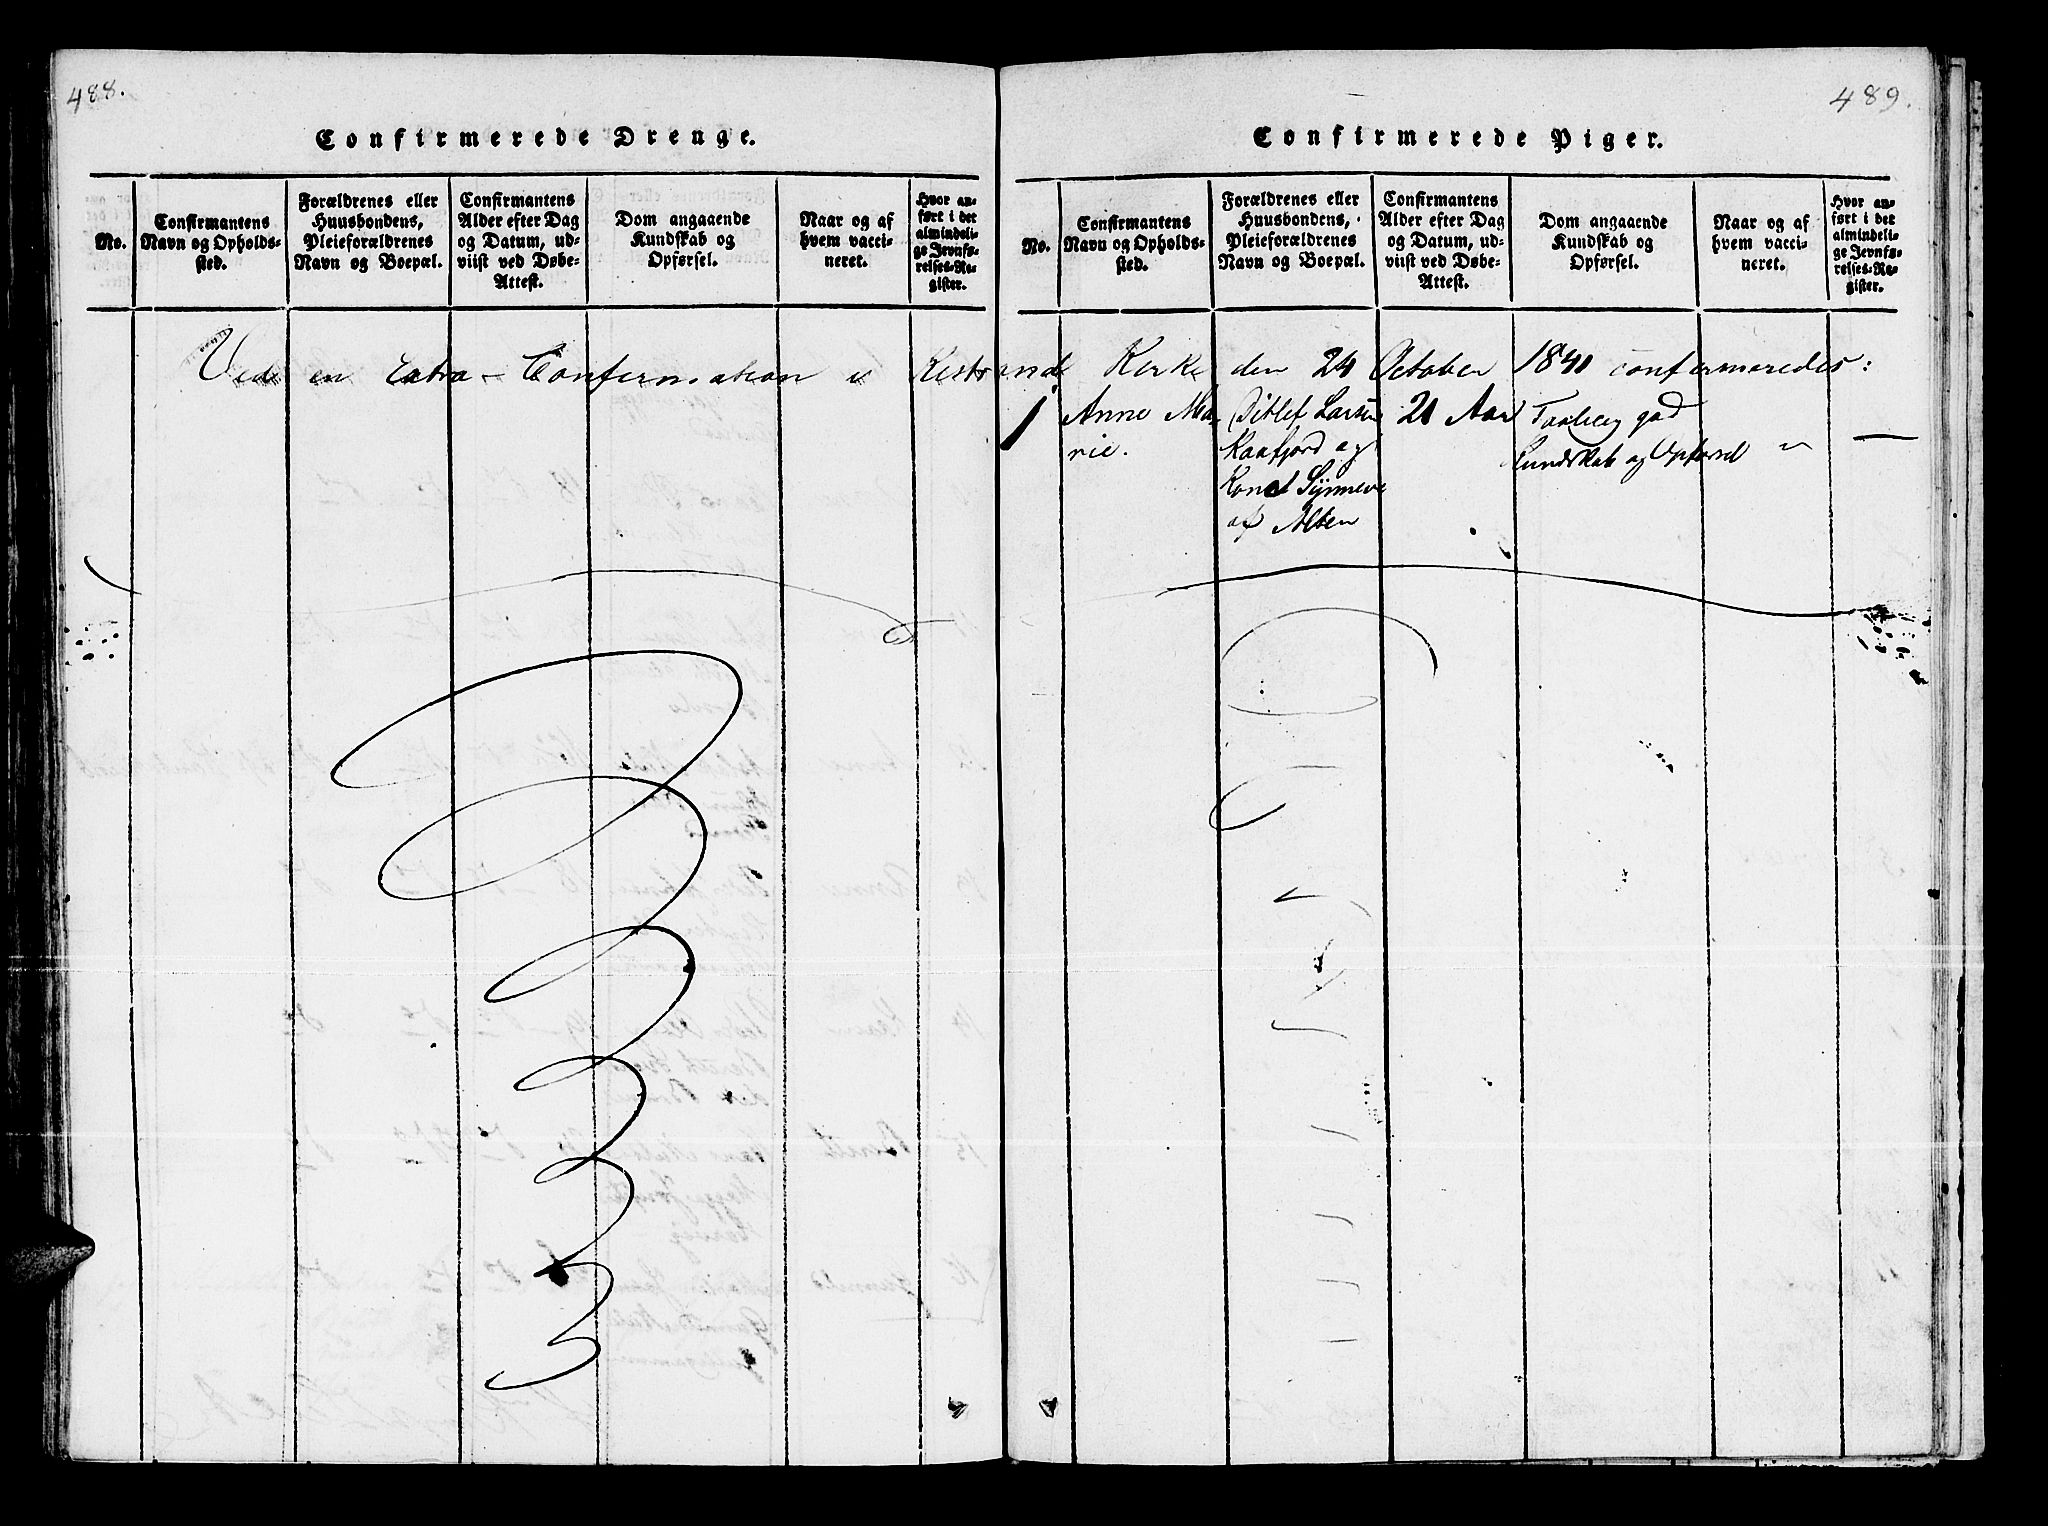 488.
Confirmerede Drenge.
No.
Confirmantens
Navn og Opholds-
sted.
Forældrenes eller
Huusbondens,
Pleieforældrenes
Navn og Boepæl.
Confirmantens
Alder efter Dag
og Datum, ud-
viist ved Døbe-
Attest.
Dom angaaende
Kundskab og
Opførsel.
Naar og af
hvem vacci-
neret.
Hvor an-
ført i det
almindeli-
ge Jevnfø-
relses-Re-
gister.
489.
Confirmerede Piger.
No.
Confirmantens
Navn og Opholds-
sted.
Forældrenes eller
Huusbondens,
Pleieforældrenes
Navn og Boepæl.
Confirmantens
Alder efter Dag
og Datum, ud-
viist ved Døbe-
Attest.
Dom angaaende
Kundskab og
Opførsel.
Naar og af
hvem vacci-
neret.
Hvor an-
ført i det
almindeli-
ge Jevnfø-
relses-Re-
gister.
Ved en Extra-Confirmation i Kistrands Kirke den 24 October 1841 confirmeredes:
1
Anne Ma-
rie.
Ditlef Larsen
Kaafjord og
Kone Synneve
af Alten
21 Aar
Taaleleg god
Kundskab og Opførsel
"
—